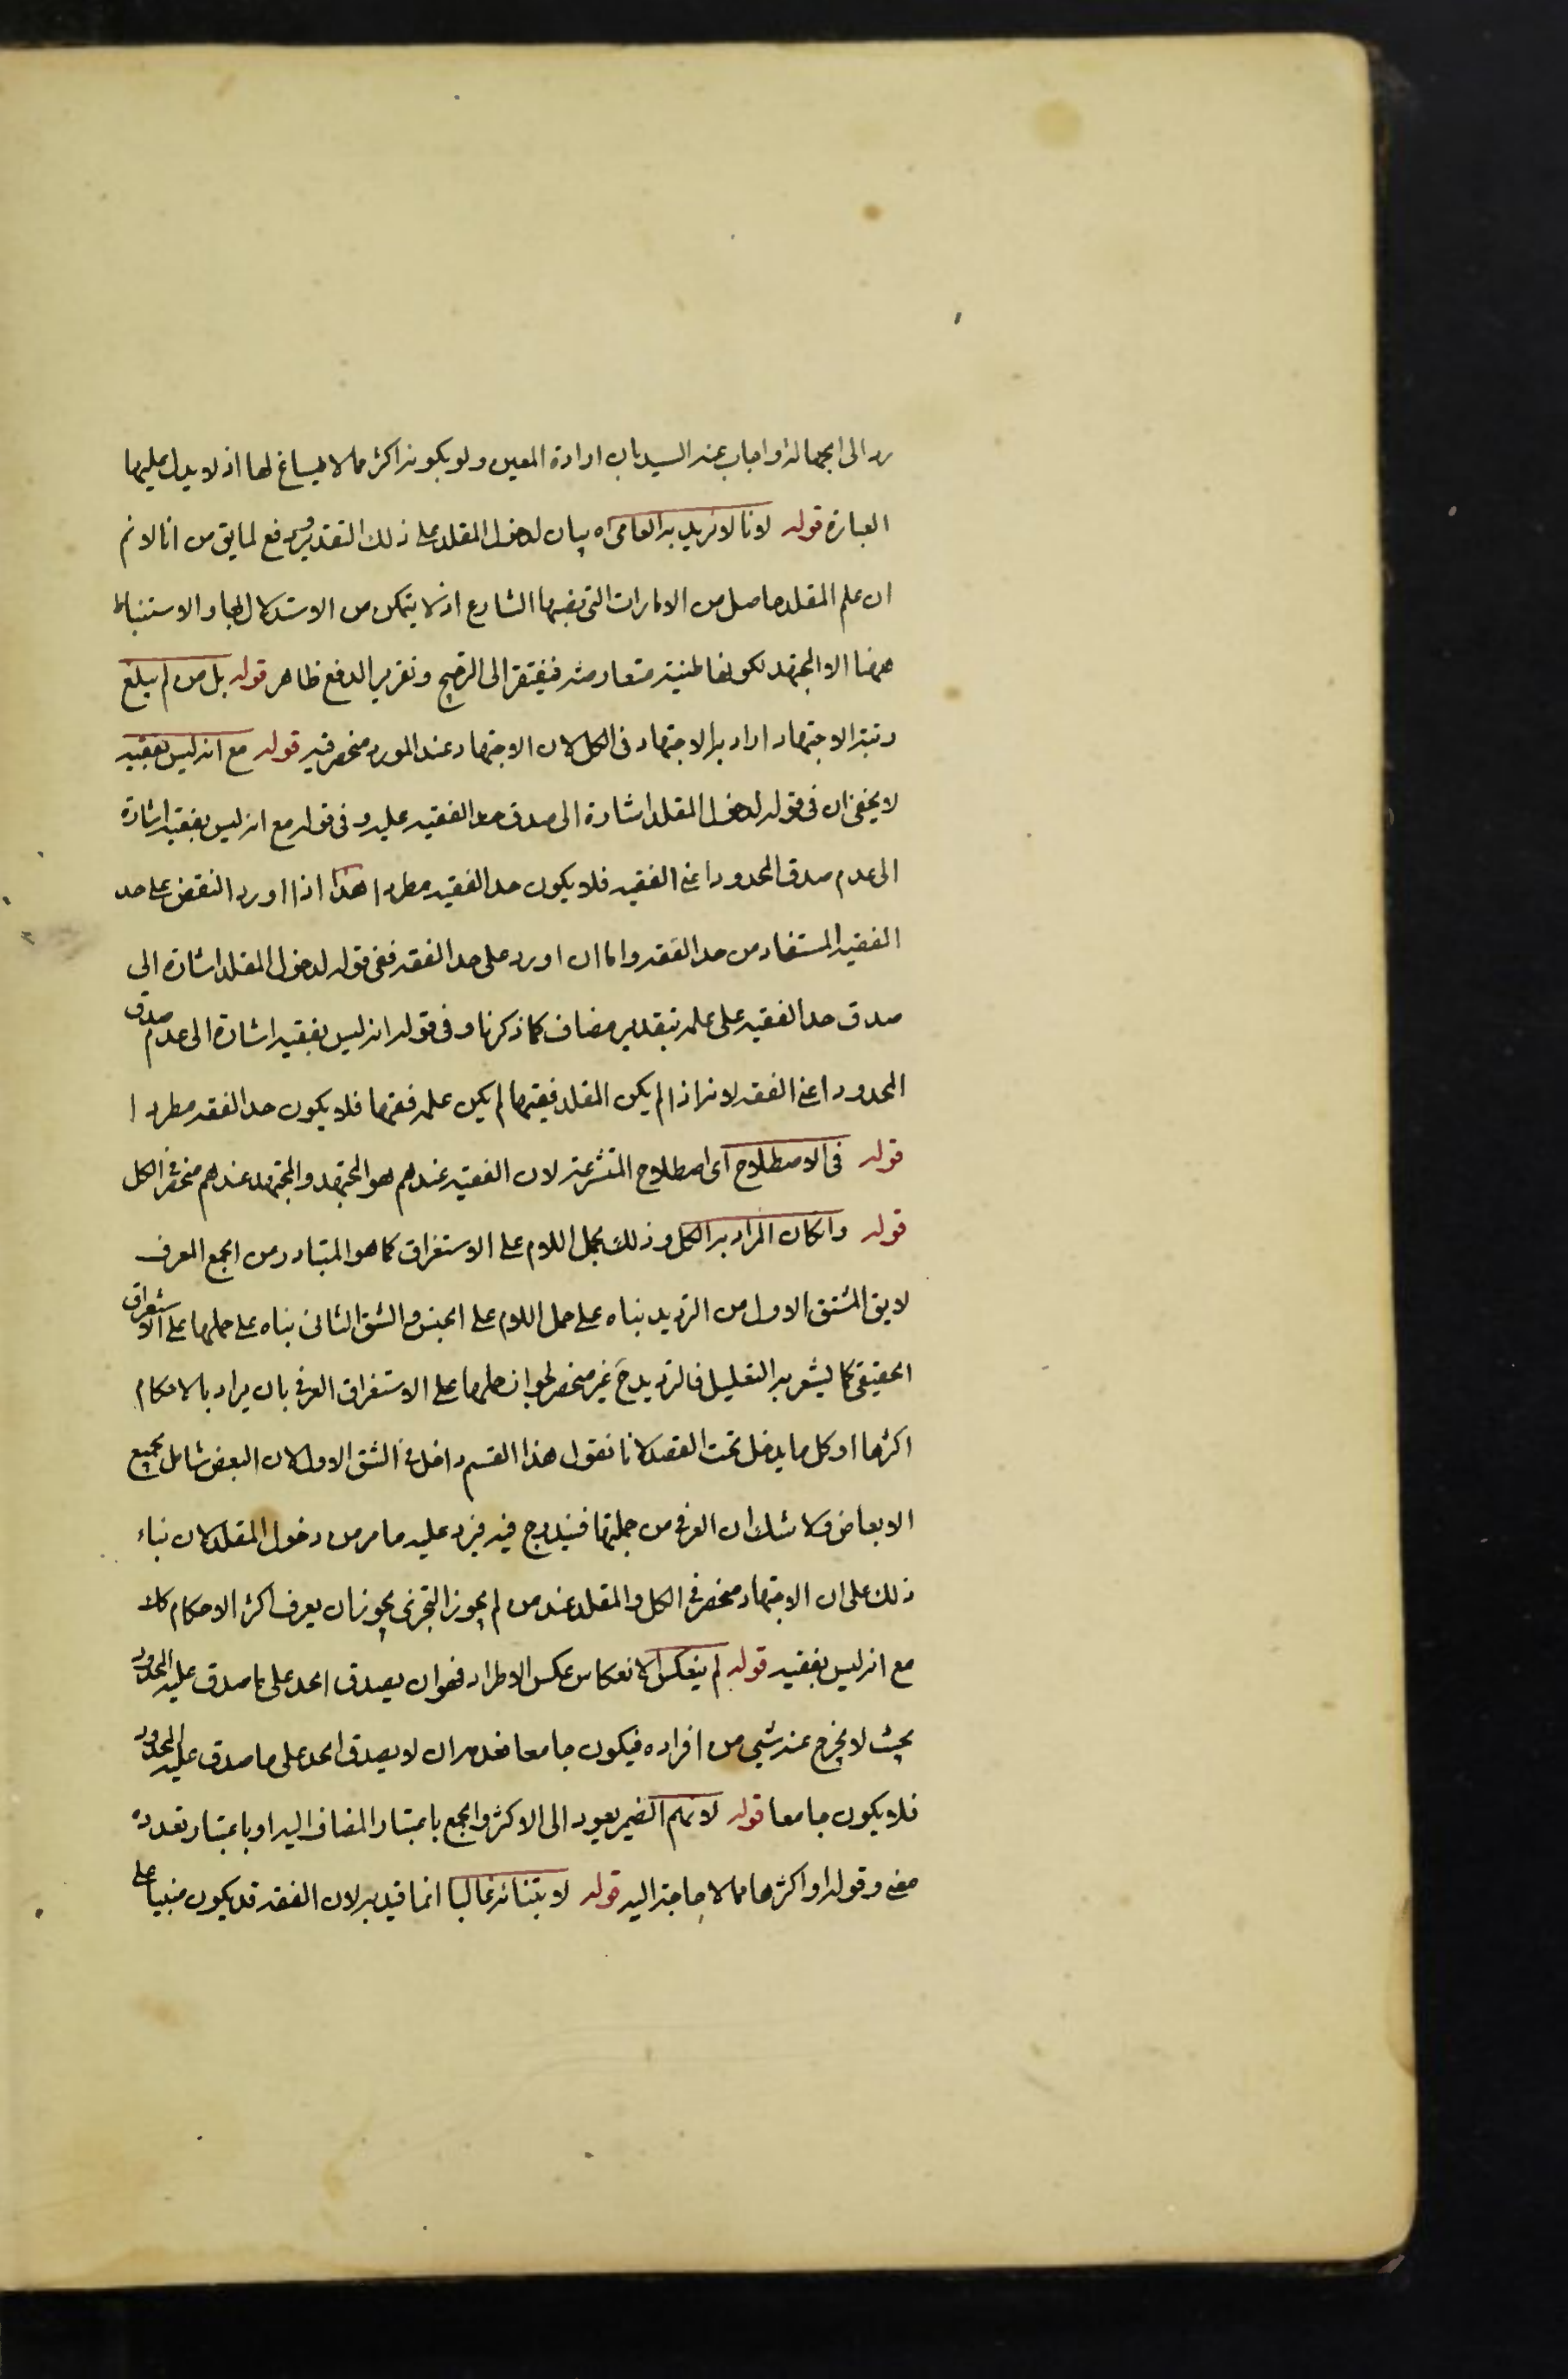 رد الى الجهالة واجاب عنه السيد بان ارادة المعين ولو بكونه اكثر مما لا مساغ لها اذ لا يدل عليها
العبارة قوله لانا لا نريد به العامى اه بيان لدخول المقلد على ذلك التقدير ودفع لما يق من انا لا نم
ان علم المقلد حاصل من الامارات التى نصبها الشارع اذ لا يتمكن من الاستدلال بها والاستنباط
عنها الا المجتهد لكونها ظنية متعارضة فيفتقر الى الترجيح وتقرير الدفع ظاهر قوله بل من لم يبلغ
رتبة الاجتهاد اراد به الاجتهاد فى الكل لان الاجتهاد عند المورد منحصر فيه قوله مع انه ليس بفقيه
لا يخفى ان فى قوله لدخول المقلد اشارة الى صدق حد الفقيه عليه وفى قوله مع انه ليس بفقيه اشارة
الى عدم صدق المحدود اعنى الفقيه فلا يكون حد الفقيه مطردا هذا اذا اورد النقض على حد
الفقيه المستفاد من حد الفقه واما ان اورد على حد الفقه ففى قوله لدخول المقلد اشارة الى
صدق حد الفقيه على علمه بتقدير مضاف كما ذكرنا وفى قوله انه ليس بفقيه اشارة الى عدم صدق
المحدود اعنى الفقه لانه اذا لم يكن المقلد فقيها لم يكن علمه فقها فلا يكون حد الفقه مطردا
قوله فى الاصطلاح اى اصطلاح المتشرعة لان الفقيه عندهم هو المجتهد والمجتهد عندهم منحصر فى الكل
قوله وان كان المراد به الكل وذلك بحمل اللام على الاستغراق كما هو المتبادر من الجمع المعرف
لا يق الشق الاول من الترديد بناه على حمل اللام على الجنس والشق الثانى بناه على حملها على الاستغراق
الحقيقى كما يشعر به التعليل فالترديد ح غير منحصر لجواز حملها على الاستغراق العرفى بان يراد بالاحكام
اكثرها او كل ما يدخل تحت القصد لانا نقول هذا القسم داخل فى الشق الاول لان البعض شامل لجميع
الابعاض ولا شك ان العرفى من جملتها فيندرج فيه فيرد عليه ما مر من دخول المقلد لان بناء
ذلك على ان الاجتهاد منحصر فى الكل والمقلد عند من لم يجوز التجزى يجوز ان يعرف اكثر الاحكام كك
مع انه ليس بفقيه قوله لم ينعكس الانعكاس عكس الاطراد فهو ان يصدق الحد على ما صدق عليه المحدود
بحيث لا يخرج عنه شيى من افراده فيكون جامعا فعدمه ان لا يصدق الحد على ما صدق عليه المحدود
فلا يكون جامعا قوله لانهم الضمير يعود الى الاكثر والجمع باعتبار المضاف اليه او باعتبار تعدده
معنى وقوله او اكثرها مما لا حاجة اليه قوله لابتنائه غالبا انما قيد به لان الفقه قد يكون مبنيا على